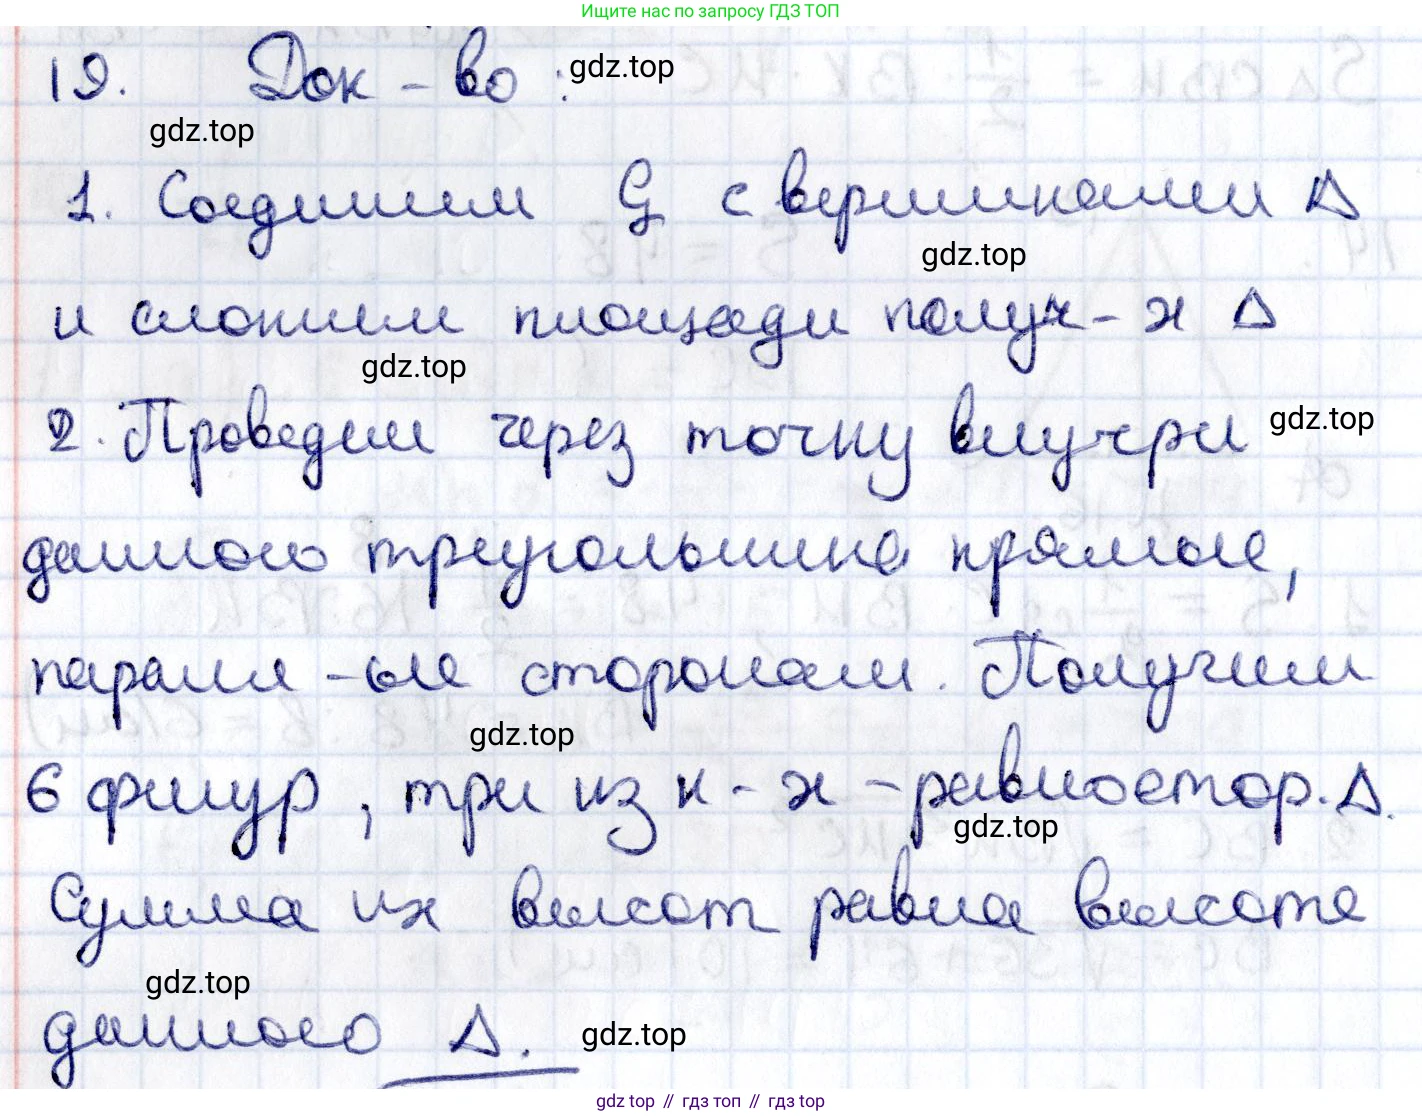 Ищите нас по запросу ГДЗ ТОП
19. Док-во: gdz.top
gdz.top
1. Соединим G с вершинами Δ
gdz.top
и сложим площади получ-х Δ
gdz.top
2. Проведем через точку внутри gdz.top
данного треугольника прямые,
паралл-ые сторонам. Получим
gdz.top
6 фигур, три из к-х - равностор. Δ.
gdz.top
Сумма их высот равна высоте
gdz.top
данного Δ. gdz.top
gdz top // гдз топ // гдз top